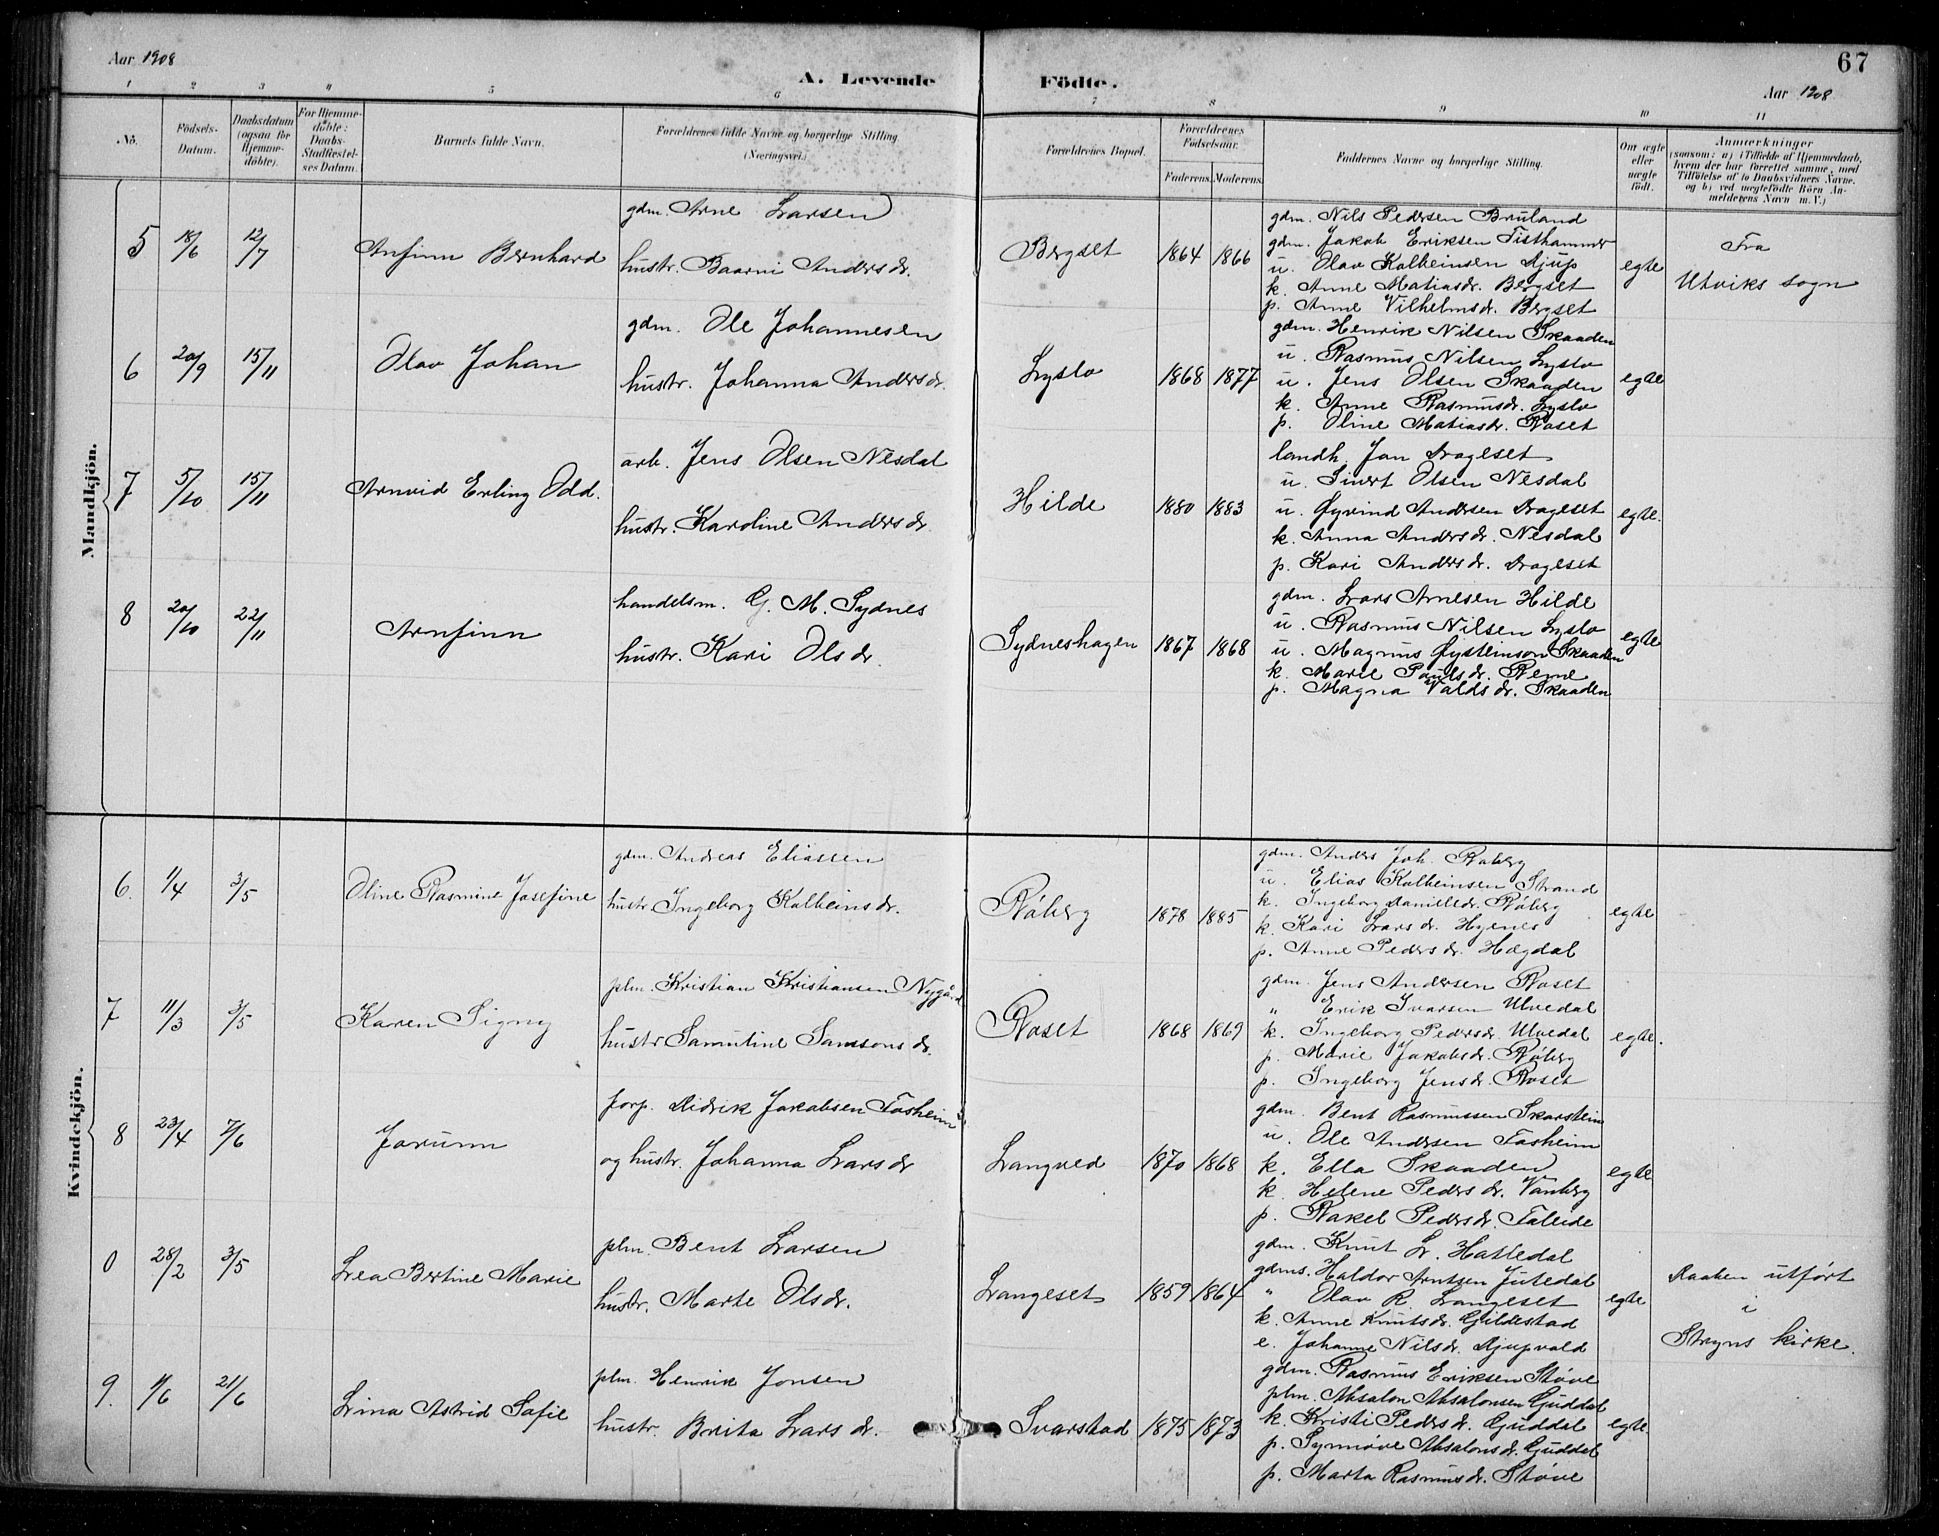 67
Aar 1908
A. Levende Födte.
Aar 1908
1 2 3 4 5 6 7 8 9 10 11
No.
Födsels-Datum.
Daabsdatum (ogsaa for Hjemme-döbte).
For Hjemme-döbte: Daabs-Stadfæstel-ses Datum.
Barnets fulde Navn.
Forældrenes fulde Navne og borgerlige Stilling (Næringsvei.)
Forældrenes Bopæl.
Forældrenes Födselsaar.
Faderens. Moderens.
Faddernes Navne og borgerlige Stilling.
Om ægte eller uægte födt.
Anmærkninger
(saasom: a) i Tilfælde af Hjemmedaab, hvem der har forrettet samme, med Tilföielse af to Daabsvidners Navne, og b) ved uægtefödte Börn An-melderens Navn m. V.)
Mandkjön.
5 18/6 12/7 Anfinn Bernhard
gdm. Arne Larsen
hustr. Baarni Andersdr.
Bergset 1864 1866
gdm. Nils Pedersen Bruland
gdm. Jakob Eriksen Tisthammer
u. Olav Kolbeinsen Djup
k. Anne Matiasdr. Bergset
p. Anne Vilhelmsdr. Bergset
egte
Fra
Utviks sogn
6 20/9 15/11 Olav Johan
gdm. Ole Johannesen
hustr. Johanna Andersdr.
Lyslo 1868 1877
gdm. Henrik Nilsen Skaaden
u. Rasmus Nilsen Lyslo
u. Jens Olsen Skaaden
k. Anne Rasmusdr. Lyslo
p. Oline Matiasdr. Roset
egte
7 5/10 15/11 Arnvid Erling Odd.
arb. Jens Olsen Nesdal
hustr. Karoline Andersdr.
Hilde 1880 1883
landh. Jan Drageset
u. Sivert Olsen Nesdal
u. Øyvind Andersen Drageset
k. Anna Andersdr. Nesdal
p. Kari Andersdr. Drageset
egte.
8 20/10 22/11 Arnfinn
handelsm. G. M. Sydnes
hustr. Kari Olsdr.
Sydneshagen 1867 1868
gdm. Lars Arnesen Hilde
u. Rasmus Nilsen Lyslo
u. Magnus Øysteinson Skaaden
k. Marie Paulsdr. Reme
p. Magna Valdsdr. Skaaden
egte.
Kvindekjön.
6. 1/4 3/5 Oline Rasmine Josefine
gdm. Andreas Eliassen
hustr. Ingeborg Kolbeinsdr.
Röberg 1878 1885
gdm. Anders Joh. Röberg
u. Elias Kolbeinsen Strand
k. Ingeborg Danielsdr. Röberg
k. Kari Larsdr. Hyenes
p. Anne Pedersdr. Hægdal
egte
7 11/3 3/5 Karen Signy
plm. Kristian Kristiansen Nygård
hustr Samuline Samsonsdr.
Roset 1868 1869
gdm. Jens Andersen Roset
" Erik Ivarsen Ulvedal
k. Ingeborg Pedersdr. Ulvedal
p. Marie Jakobsdr. Röberg
p. Ingeborg Jensdr. Roset
egte.
8 23/4 7/6 Jorunn
forp. Didrik Jakobsen Fosheim
og hustr. Johanna Larsdr
Langved 1870 1868
gdm. Bent Rasmussen Skarstein
u. Ole Andersen Fosheim
k. Ella Skaaden
k. Helene Pedersdr. Vanberg
p. Rakel Pedersdr. Faleide
egte
0 28/2 3/5 Lea Bertine Marie
plm. Bent Larsen
hustr. Marte Olsdr.
Langeset 1859 1864
gdm. Knut L. Hatledal
gdms. Haldor Arntsen Jutedal
" Olav R. Langeset
k. Anne Knutsdr. Gildestad
e. Johanne Nilsdr. Djupvald
egte
Daaben utført
i
Stryns kirke.
9. 1/6 21/6 Lina Astrid Sofie
plm. Henrik Jonsen
hustr. Brita Larsdr.
Svarstad 1875 1873
gdm. Rasmus Eriksen Støve
plm. Absalon Absalonsen Guddal
k. Kristi Pedersdr. Guddal
p. Synnøve Absalonsdr. Guddal
p. Marta Rasmusdr. Støve
egte.